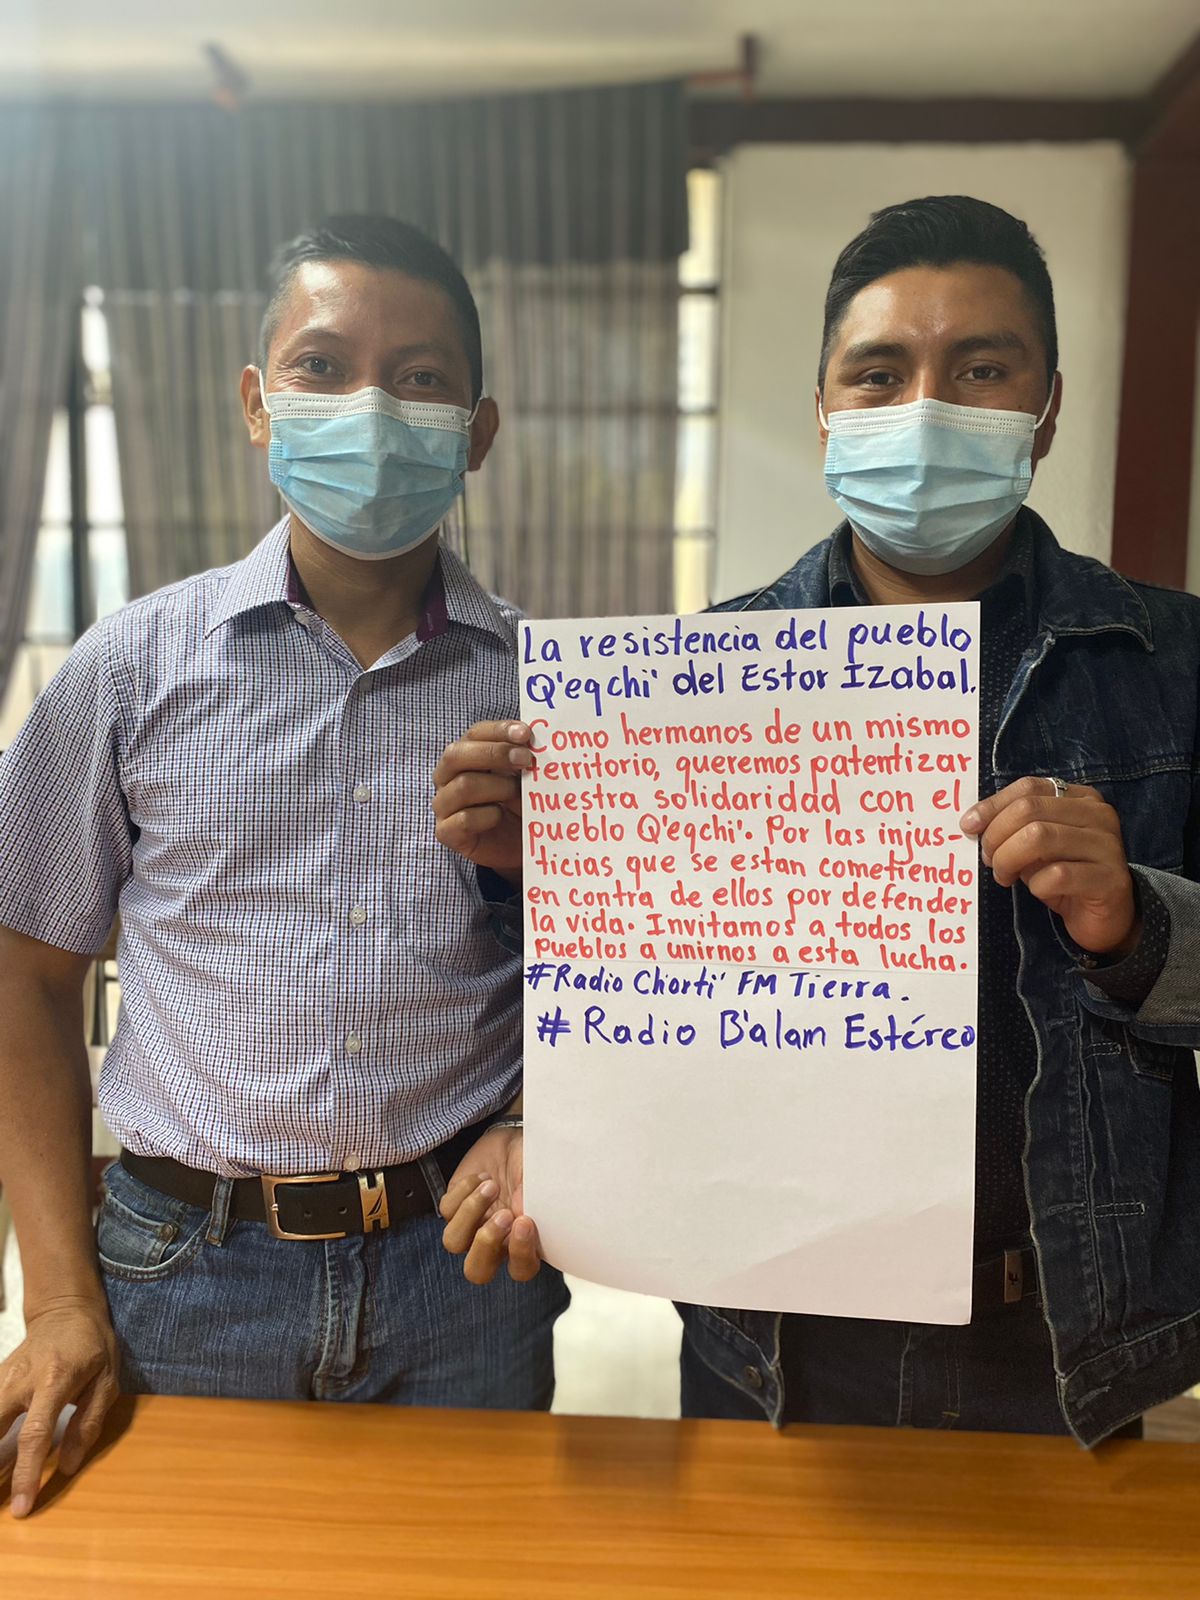 La resistencia del pueblo
Q'eqchi' del Estor Izabal.
Como hermanos de un mismo
territorio, queremos patentizar
nuestra solidaridad con el
pueblo Q'eqchi'. Por las injus-
ticias que se estan cometiendo
en contra de ellos por defender
la vida. Invitamos a todos los
pueblos a unirnos a esta lucha.
#Radio Ch'orti' FM Tierra.
# Radio B'alam Estéreo